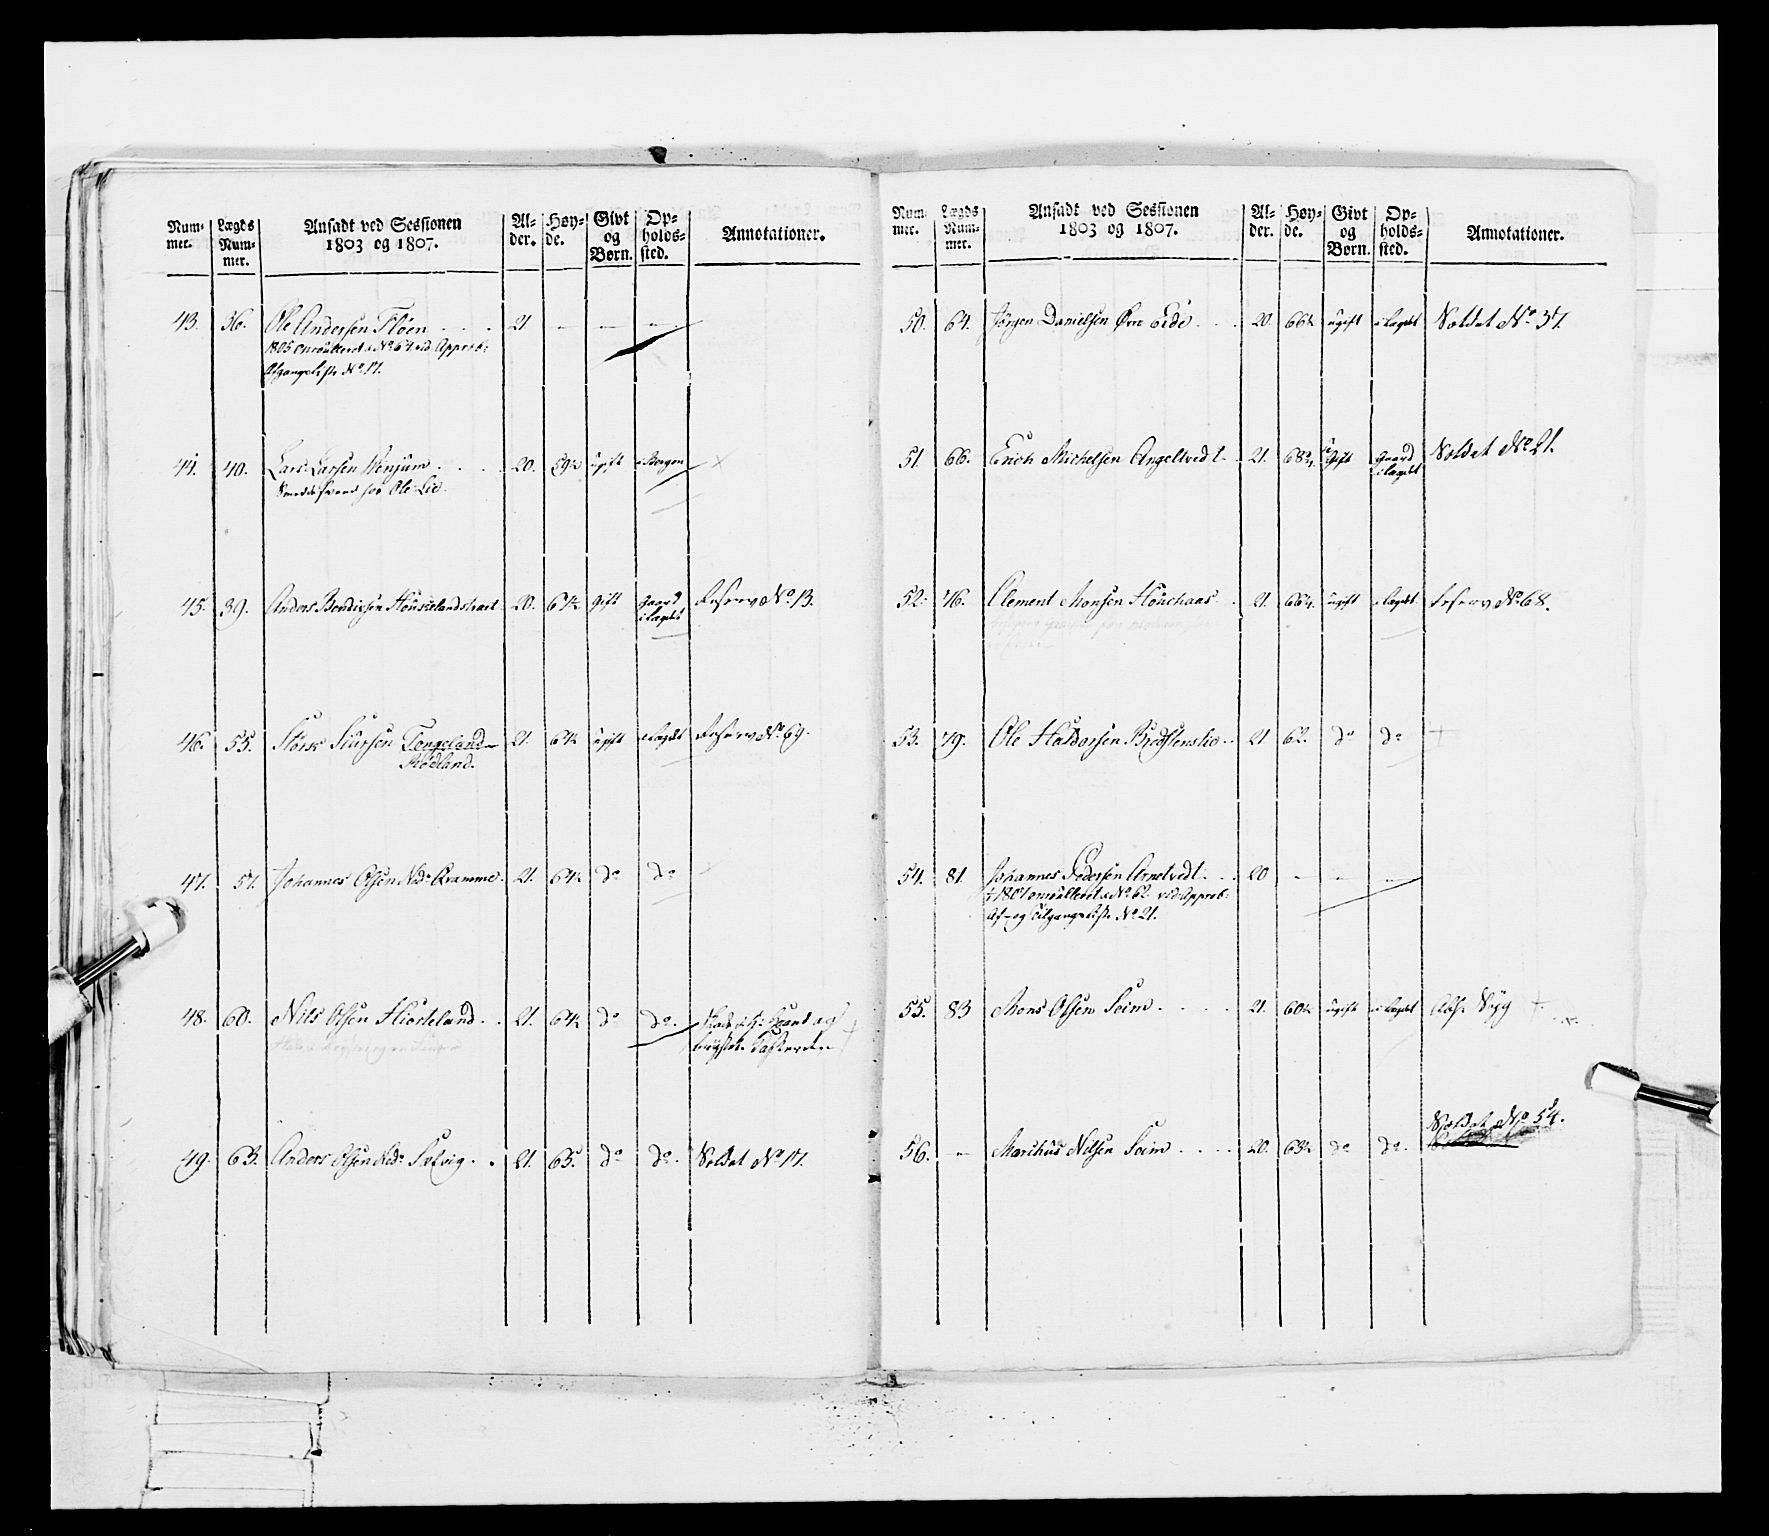 Num- mer. | Lægds Num- mer. | Ansadt ved Sessionen 1803 og 1807. | Al- der. | Høy- de. | Givt og Børn. | Op- holds- sted. | Annotationer.
43. | 36. | Ole Andersen Flöen . . . | 21 | — | — | —
1805 omrulleret No 64 ved Approb:
Afgangsliste No 17.
44. | 40. | Lars Larsen Wenjum . . . | 20. | 59½ | ugift | i Bergen
Smeddesvend hos Ole Lie
45. | 39. | Anders Bendixsen | 20. | 64 | gift | Gaard i Lægdet | Reserv No 13.
46. | 55. | Tengeland | 21. | 64 | ugift | i Lægdet | Reserv No 69.
Rödland.
47. | 57. | Johannes Olsen Ned: Qvamme | 21. | 64 | do | do
48. | 60. | Nils Olsen Hiorteland . . | 21. | 64 | do | do.
49. | 63. | Anders Olsen Ned: Solvig . . | 21. | 65. | do | do. | Soldat No 17.
Num- mer. | Lægds Num- mer. | Ansadt ved Sessionen 1803 og 1807. | Al- der. | Høy- de. | Givt og Børn. | Op- holds- sted. | Annotationer.
50. | 64. | Jörgen Danielsen Övre Eide . . . | 20. | 66 | ugift | i Lægdet | Soldat No 37.
51. | 66. | Erich Michelsen Angeltvedt | 21. | 68 | gift | Gaard i Lægdet | Soldat No 21.
52. | 76. | Clement Monsen | 21. | 66 | ugift | i Lægdet | Reserv No 68.
53. | 79. | Ole Haldorsen | 21 | 62. | do | do
54. | 81. | Johannes Pedersen Arnetvedt . . . | 20 | — | — | —
1807 omrulleret No 62 ved Approb:
Af- og Tilgangsliste No 21.
55. | 83 | Mons Olsen Seim . . . . | 21. | 60 | ugift | i Lægdet | Syg
56. | — | Marchus Nilsen Seim . . . . | 20. | 63 | do | do. | Soldat No 54.